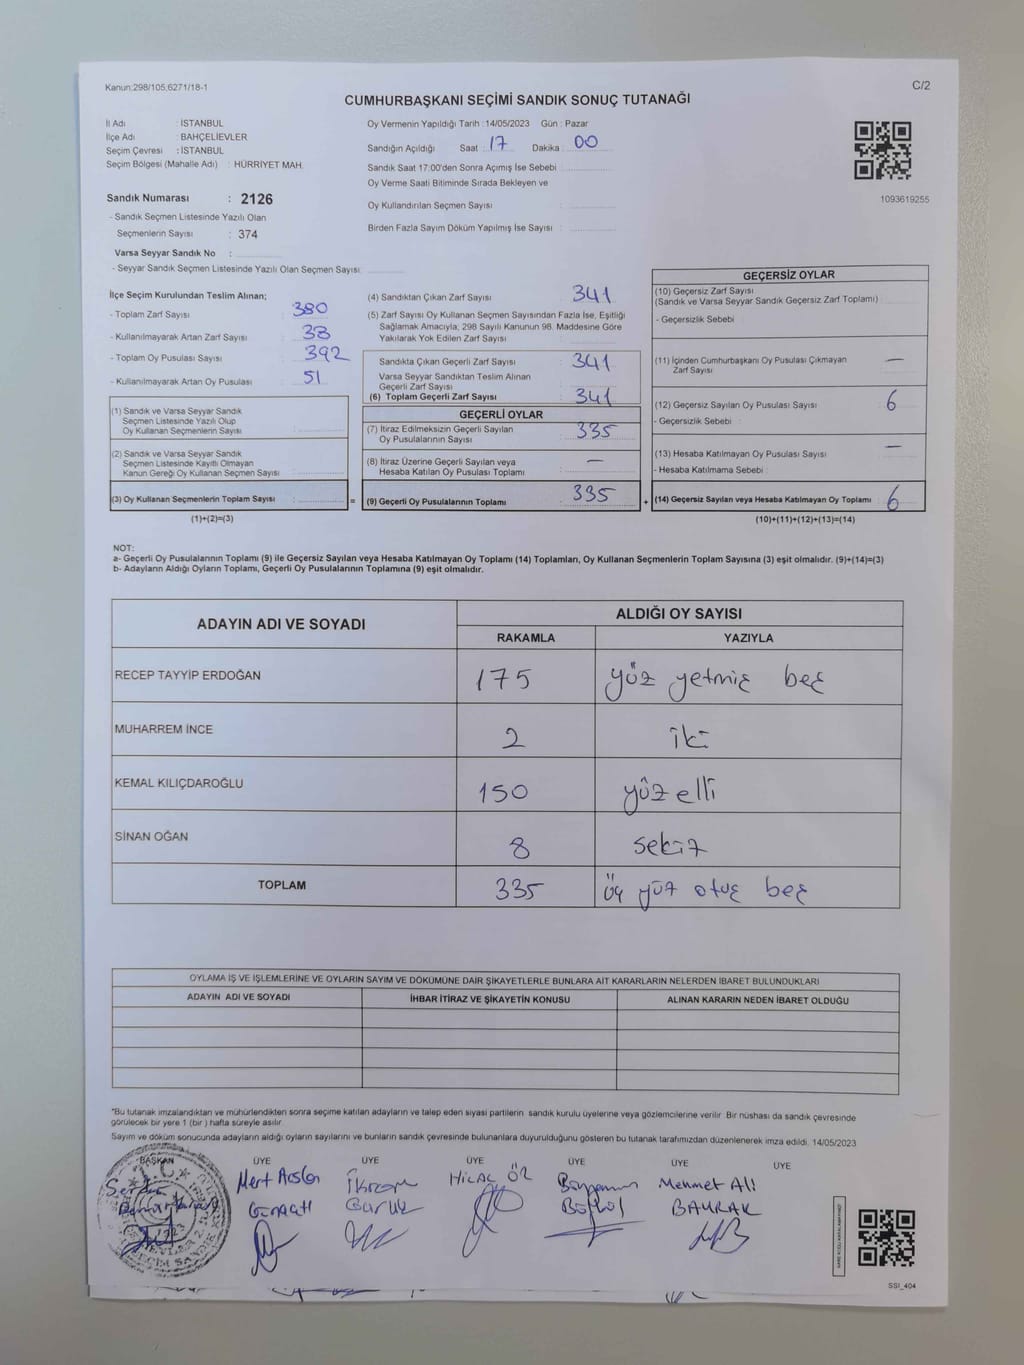 Kanun:298/105,6271/18-1
C/2
CUMHURBAŞKANI SEÇİMİ SANDIK SONUÇ TUTANAĞI
İl Adı : İSTANBUL
İlçe Adı : BAHÇELİEVLER
Seçim Çevresi : İSTANBUL
Seçim Bölgesi (Mahalle Adı) : HÜRRİYET MAH.
Oy Vermenin Yapıldığı Tarih :14/05/2023 Gün : Pazar
Sandığın Açıldığı Saat : 17 Dakika : 00
Sandık Saat 17:00'den Sonra Açımış İse Sebebi :
Oy Verme Saati Bitiminde Sırada Bekleyen ve
Oy Kullandırılan Seçmen Sayısı :
Birden Fazla Sayım Döküm Yapılmış İse Sayısı :
1093619255
Sandık Numarası : 2126
- Sandık Seçmen Listesinde Yazılı Olan
Seçmenlerin Sayısı : 374
Varsa Seyyar Sandık No :
- Seyyar Sandık Seçmen Listesinde Yazılı Olan Seçmen Sayısı:
İlçe Seçim Kurulundan Teslim Alınan;
- Toplam Zarf Sayısı : 380
- Kullanılmayarak Artan Zarf Sayısı : 38
- Toplam Oy Pusulası Sayısı : 392
- Kullanılmayarak Artan Oy Pusulası : 51
(1) Sandık ve Varsa Seyyar Sandık
Seçmen Listesinde Yazılı Olup
Oy Kullanan Seçmenlerin Sayısı :
(2) Sandık ve Varsa Seyyar Sandık
Seçmen Listesinde Kayıtlı Olmayan
Kanun Gereği Oy Kullanan Seçmen Sayısı :
(3) Oy Kullanan Seçmenlerin Toplam Sayısı : =
(1)+(2)=(3)
(4) Sandıktan Çıkan Zarf Sayısı : 341
(5) Zarf Sayısı Oy Kullanan Seçmen Sayısından Fazla İse, Eşitliği
Sağlamak Amacıyla; 298 Sayılı Kanunun 98. Maddesine Göre
Yakılarak Yok Edilen Zarf Sayısı :
Sandıkta Çıkan Geçerli Zarf Sayısı : 341
Varsa Seyyar Sandıktan Teslim Alınan
Geçerli Zarf Sayısı :
(6) Toplam Geçerli Zarf Sayısı : 341
GEÇERLİ OYLAR
(7) İtiraz Edilmeksizin Geçerli Sayılan
Oy Pusulalarının Sayısı : 335
(8) İtiraz Üzerine Geçerli Sayılan veya
Hesaba Katılan Oy Pusulası Toplamı : —
(9) Geçerli Oy Pusulalarının Toplamı : 335 +
GEÇERSİZ OYLAR
(10) Geçersiz Zarf Sayısı
(Sandık ve Varsa Seyyar Sandık Geçersiz Zarf Toplamı) :
- Geçersizlik Sebebi :
(11) İçinden Cumhurbaşkanı Oy Pusulası Çıkmayan
Zarf Sayısı : —
(12) Geçersiz Sayılan Oy Pusulası Sayısı : 6
- Geçersizlik Sebebi :
(13) Hesaba Katılmayan Oy Pusulası Sayısı : —
- Hesaba Katılmama Sebebi :
(14) Geçersiz Sayılan veya Hesaba Katılmayan Oy Toplamı : 6
(10)+(11)+(12)+(13)=(14)
NOT:
a- Geçerli Oy Pusulalarının Toplamı (9) ile Geçersiz Sayılan veya Hesaba Katılmayan Oy Toplamı (14) Toplamları, Oy Kullanan Seçmenlerin Toplam Sayısına (3) eşit olmalıdır. (9)+(14)=(3)
b- Adayların Aldığı Oyların Toplamı, Geçerli Oy Pusulalarının Toplamına (9) eşit olmalıdır.
ADAYIN ADI VE SOYADI
ALDIĞI OY SAYISI
RAKAMLA YAZIYLA
RECEP TAYYİP ERDOĞAN 175 yüz yetmiş beş
MUHARREM İNCE 2 iki
KEMAL KILIÇDAROĞLU 150 yüz elli
SİNAN OĞAN 8 sekiz
TOPLAM 335 üç yüz otuz beş
OYLAMA İŞ VE İŞLEMLERİNE VE OYLARIN SAYIM VE DÖKÜMÜNE DAİR ŞİKAYETLERLE BUNLARA AİT KARARLARIN NELERDEN İBARET BULUNDUKLARI
ADAYIN ADI VE SOYADI İHBAR İTİRAZ VE ŞİKAYETİN KONUSU ALINAN KARARIN NEDEN İBARET OLDUĞU
"Bu tutanak imzalandıktan ve mühürlendikten sonra seçime katılan adayların ve talep eden siyasi partilerin sandık kurulu üyelerine veya gözlemcilerine verilir. Bir nüshası da sandık çevresinde
görülecek bir yere 1 (bir ) hafta süreyle asılır.
Sayım ve döküm sonucunda adayların aldığı oyların sayılarını ve bunların sandık çevresinde bulunanlara duyurulduğunu gösteren bu tutanak tarafımızdan düzenlenerek imza edildi. 14/05/2023
BAŞKAN ÜYE ÜYE ÜYE ÜYE ÜYE ÜYE
Mert Arslan HİLAL ÖZ Mehmet Ali
BAYRAK
SSI_404